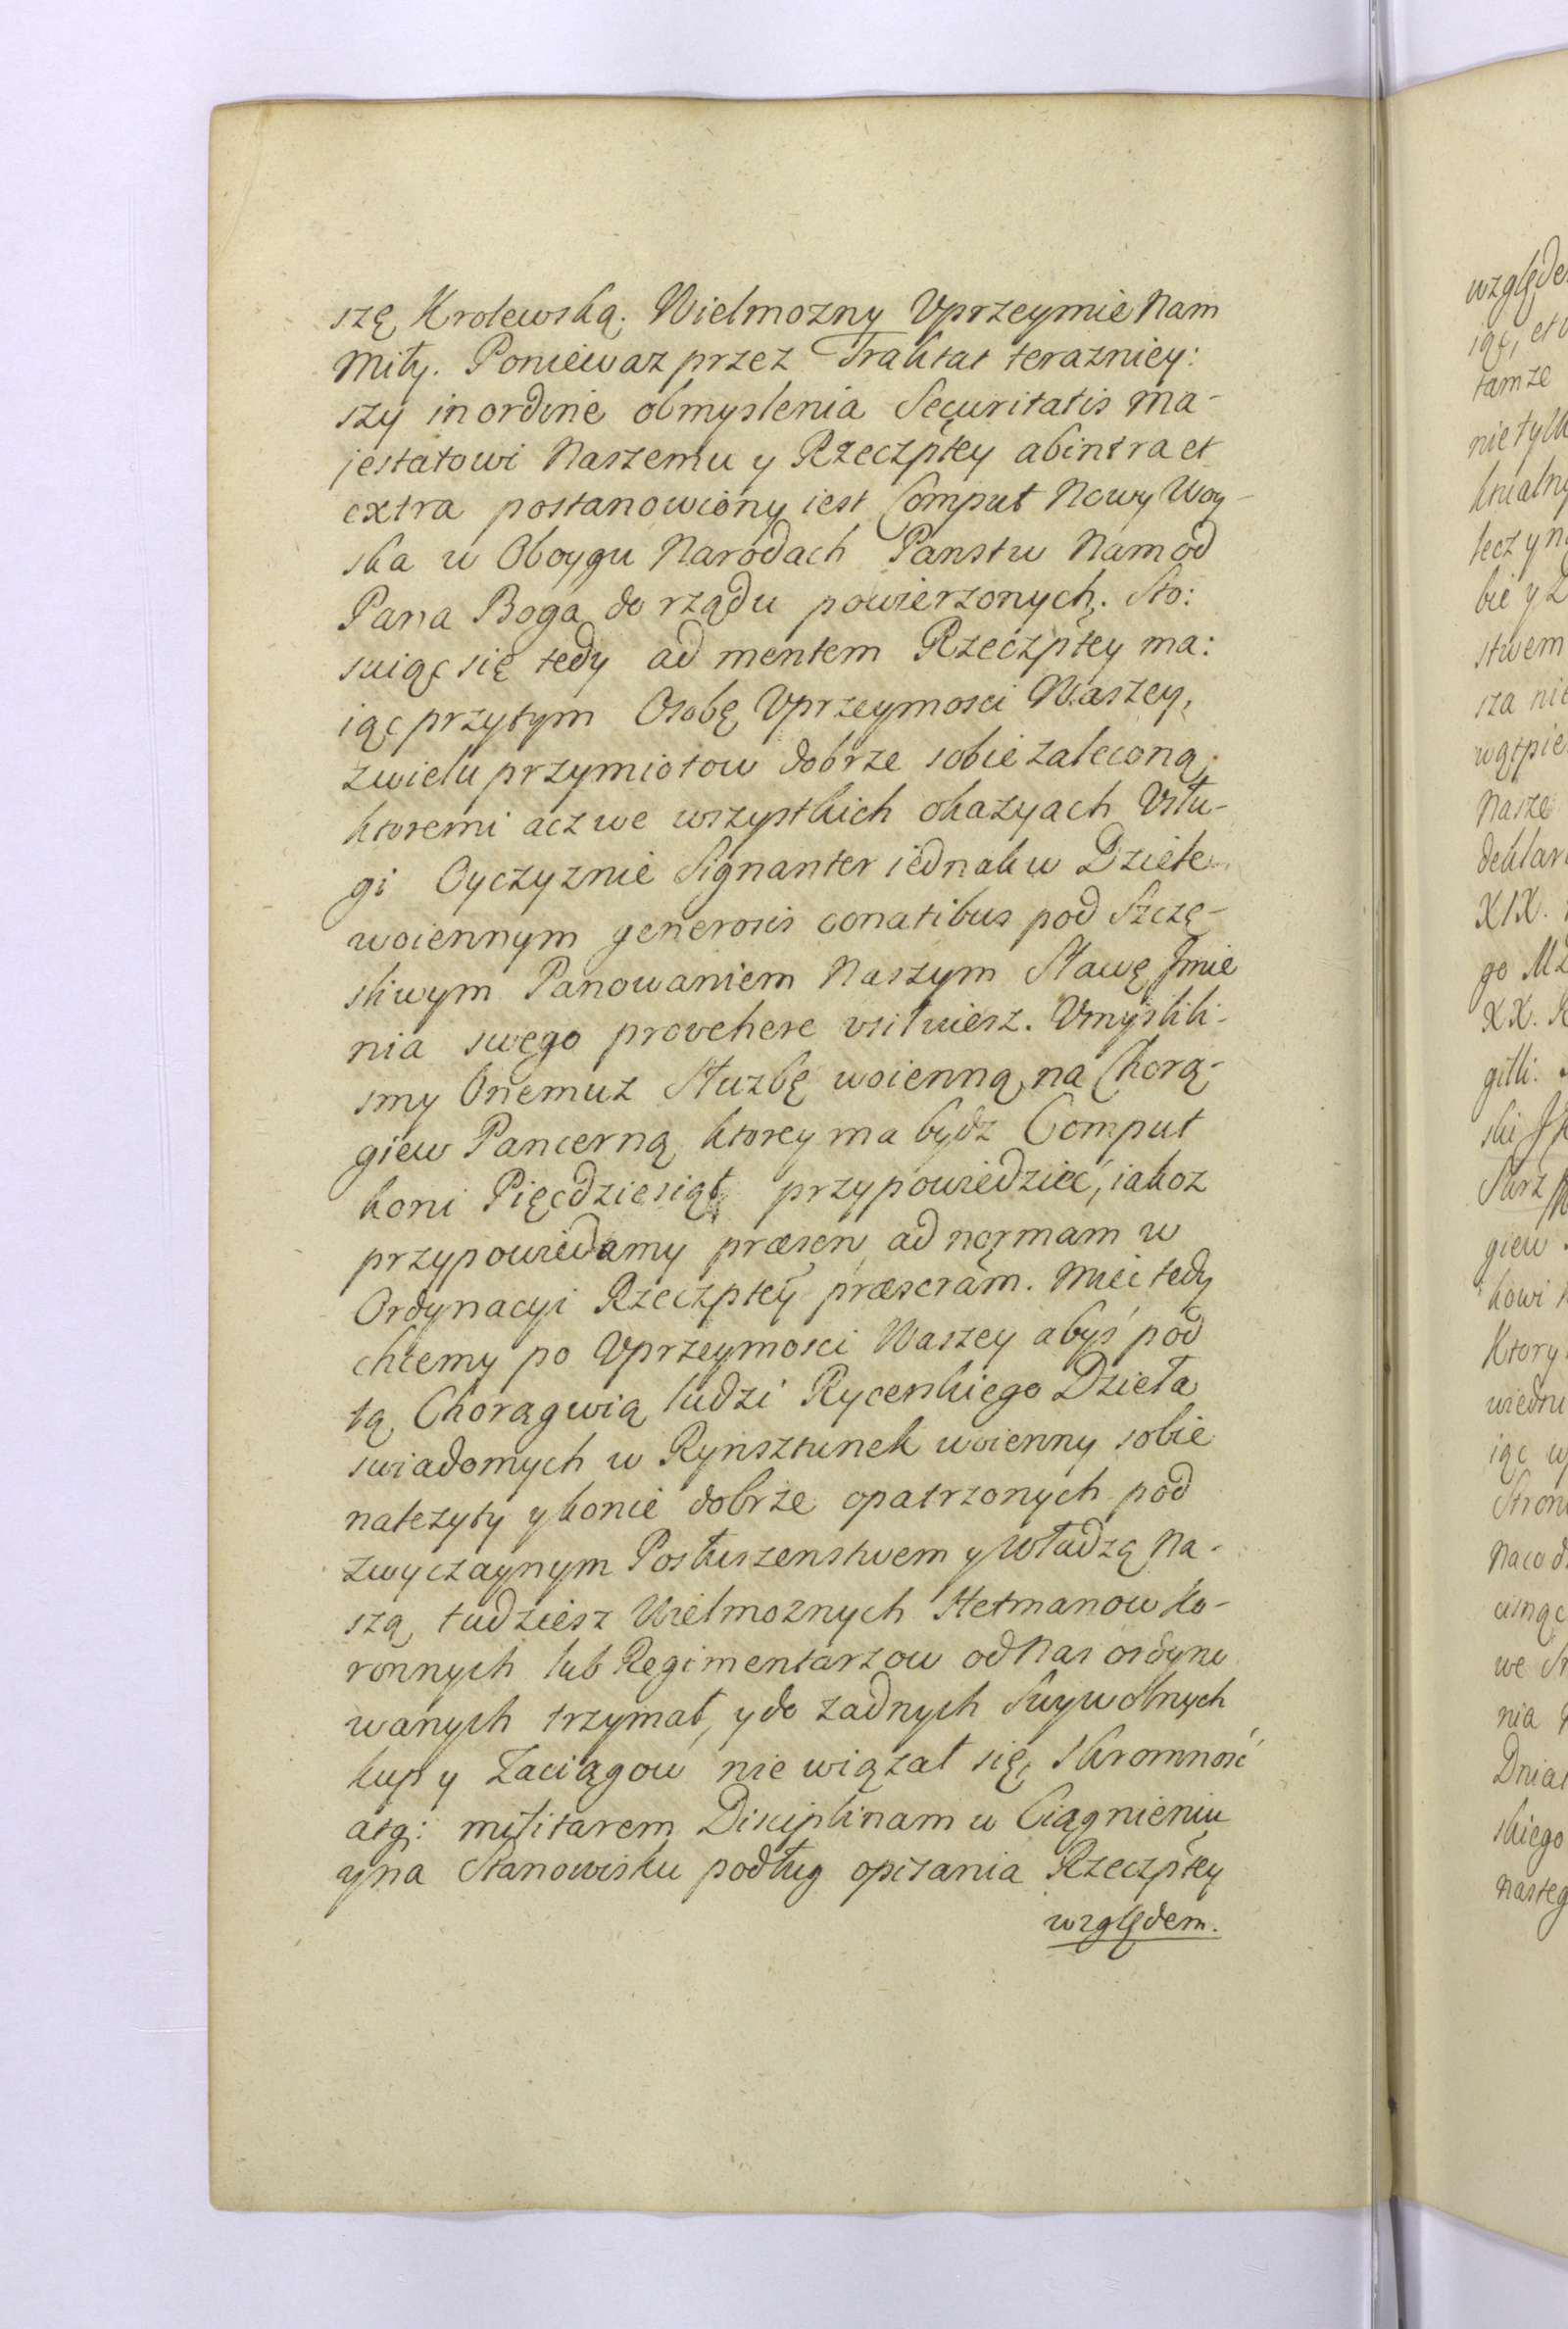 szę Krolewską. Wielmozny Vprzeymie Nam
Miły. Poniewaz przez Traktat terazniey:
szy in ordine obmyslenia Securitatis Ma-
jestatowi Naszemu y Rzeczpłey ab intra et
extra postanowiony iest Comput Nowy Woy-
ska w Oboygu Narodach Panstw Nam od
Pana Boga do rządu powierzonych. Sto:
suiąc się tedy ad mentem Rzeczpłey ma:
iąc przytym Osobę Vprzeymosci Waszey,
z wielu przymiotow dobrze sobie zaleconą,
ktoremi acz we wszystkich okazyach Vsłu-
gi Oyczyznie Signanter iednak w Dziele
woiennym generosis conatibus pod Szczę-
sliwym Panowaniem Naszym Sławę Jmie
nia swego provehere vsiłuiesz. Vmyslili-
smy Onemuz Słuzbę woienną na Chorą-
giew Pancerną ktorey ma bydz Comput
koni Pięcdziesiąt przypowiedzieć, iakoz
przypowiedamy præsen ad normam w
Ordynacyi Rzeczpłey præscram. Miec tedy
chcemy po Vprzeymosci Waszey abyś pod
tą Chorągwią ludzi Rycerskiego Dzieła
swiadomych w Rynsztunek woienny sobie
nalezyty y konie dobrze opatrzonych pod
zwyczaynym Posłuszenstwem y Władzą Na-
szą tudziesz Wielmoznych Hetmanow Ko-
ronnych lub Regimentarzow od Nas ordyno
wanych trzymał, y do zadnych Swywolnych
kup y Zaciągow nie wiązał się, Skromność
atq: militarem Disciplinam w Ciągnieniu
y na Stanowisku podług opisania Rzeczpłey
względem.
względe
iąc, et
tamze
nie tylk
ktualny
lecz y n
bie y
stwem
sza nie
wątpie
Nasze
deklar
XIX.
go
XX.
gilli.
ski
giew
kowi
Ktory
wiedni
iąc
Stron
Naco
cisnąc
we
nia
Dnia
skiego
nasteg